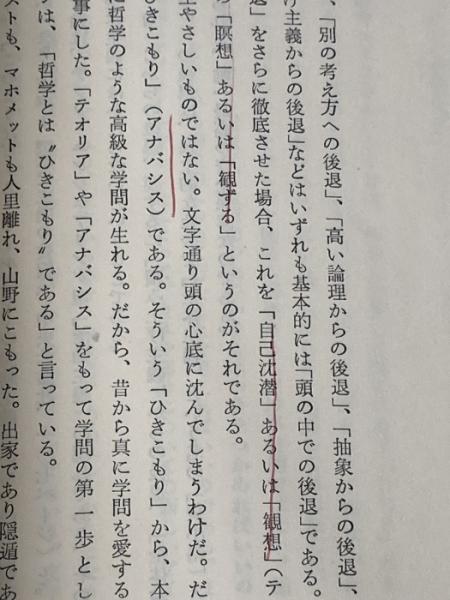 、「別の考え方への後退」、「高い論理からの後退」、「抽象からの後退」、
主義からの後退」などはいずれも基本的には「頭の中での後退」である。
退」をさらに徹底させた場合、これを「自己沈潜」あるいは「観想」(テ
の「瞑想」あるいは「観ずる」というのがそれである。
やさしいものではない。文字通り頭の心底に沈んでしまうわけだ。だ
ひきこもり」(アナバシス)である。そういう「ひきこもり」から、本
に哲学のような高級な学問が生れる。だから、昔から真に学問を愛する
事にした。「テオリア」や「アナバシス」をもって学問の第一歩とし
は、「哲学とは〝ひきこもり〟である」と言っている。
ストも、マホメットも人里離れ、山野にこもった。出家であり隠遁であ